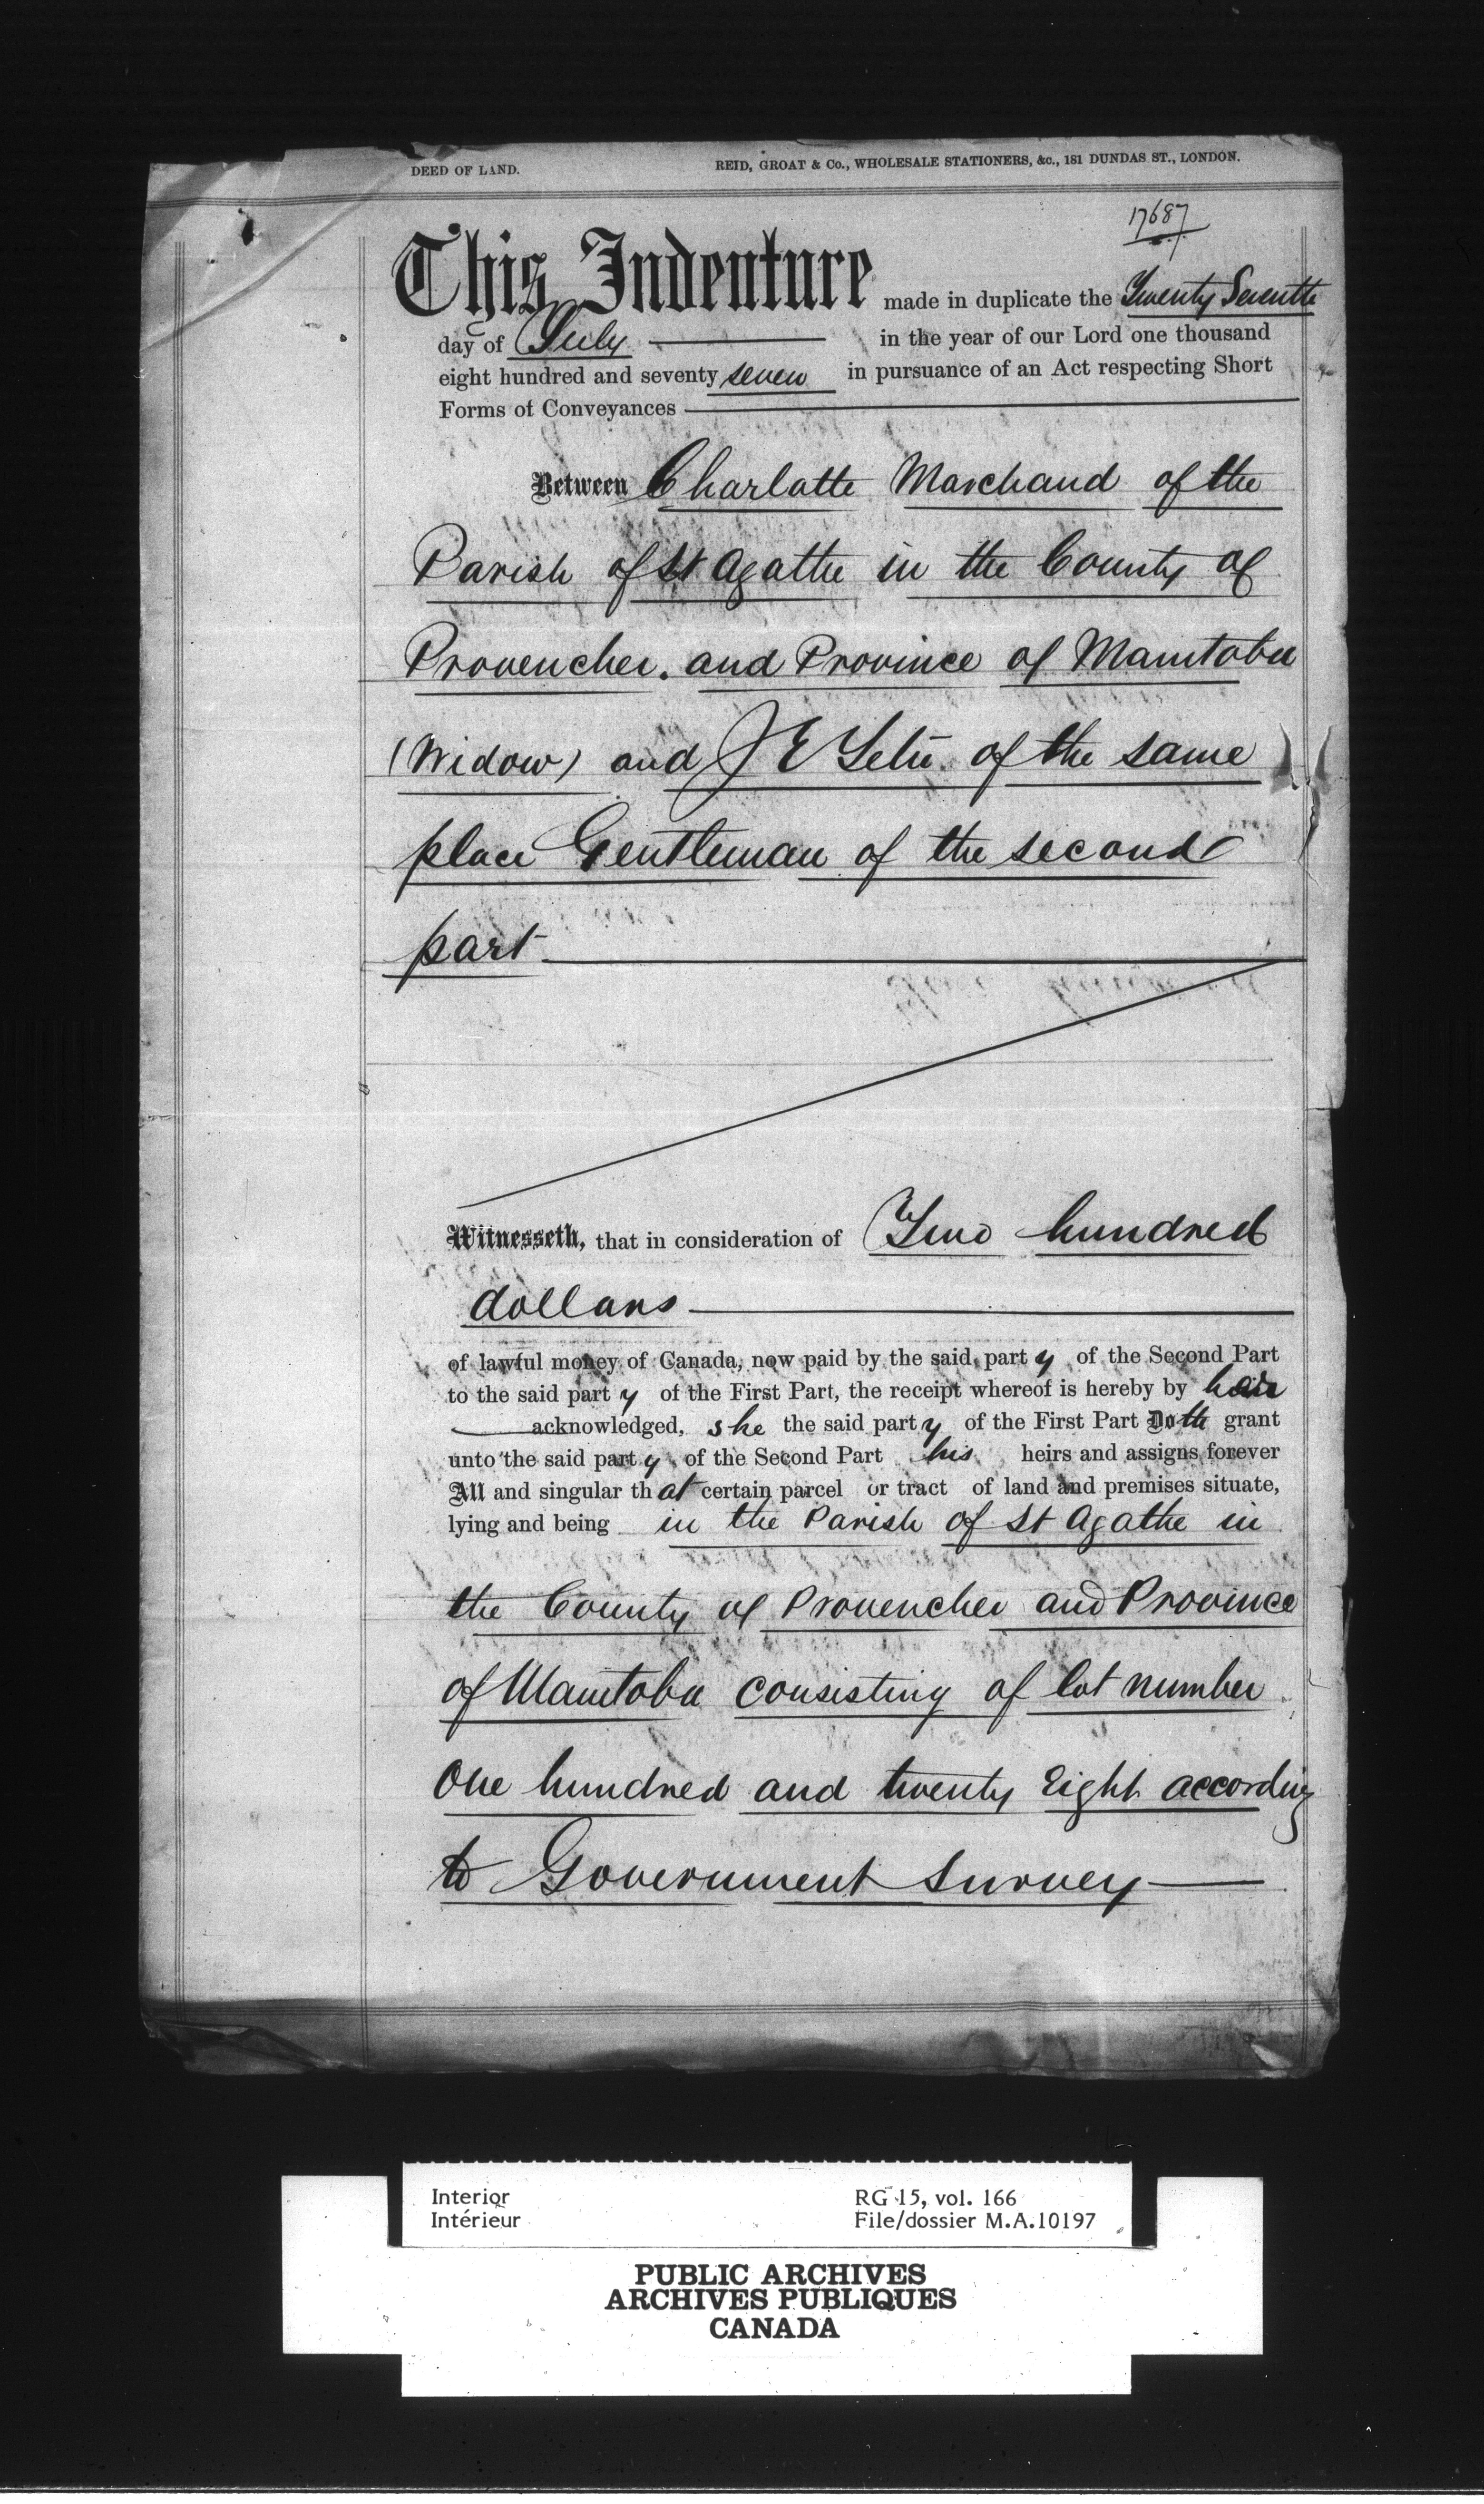 DEED OF LAND. REID, GROAT & Co., WHOLESALE STATIONERS, &c., 181 DUNDAS ST., LONDON.
17687
This Indenture made in duplicate the Twenty Seventh
day of July in the year of our Lord one thousand
eight hundred and seventy seven in pursuance of an Act respecting Short
Forms of Conveyances
Between Charlotte Marchand of the
Parish of St Agathe in the County of
Provencher. and Province of Manitoba
(Widow) and J E Tetu of the same
place Gentleman of the second
part
Witnesseth, that in consideration of Two hundred
dollars
of lawful money of Canada, now paid by the said part y of the Second Part
to the said part y of the First Part, the receipt whereof is hereby by her
acknowledged, she the said part y of the First Part Doth grant
unto the said part y of the Second Part his heirs and assigns forever
All and singular that certain parcel or tract of land and premises situate,
lying and being in the Parish of St Agathe in
the County of Provencher and Province
of Manitoba consisting of lot number
One hundred and twenty Eight according
to Government Survey
Interior RG 15, vol. 166
Intérieur File/dossier M.A.10197
PUBLIC ARCHIVES
ARCHIVES PUBLIQUES
CANADA